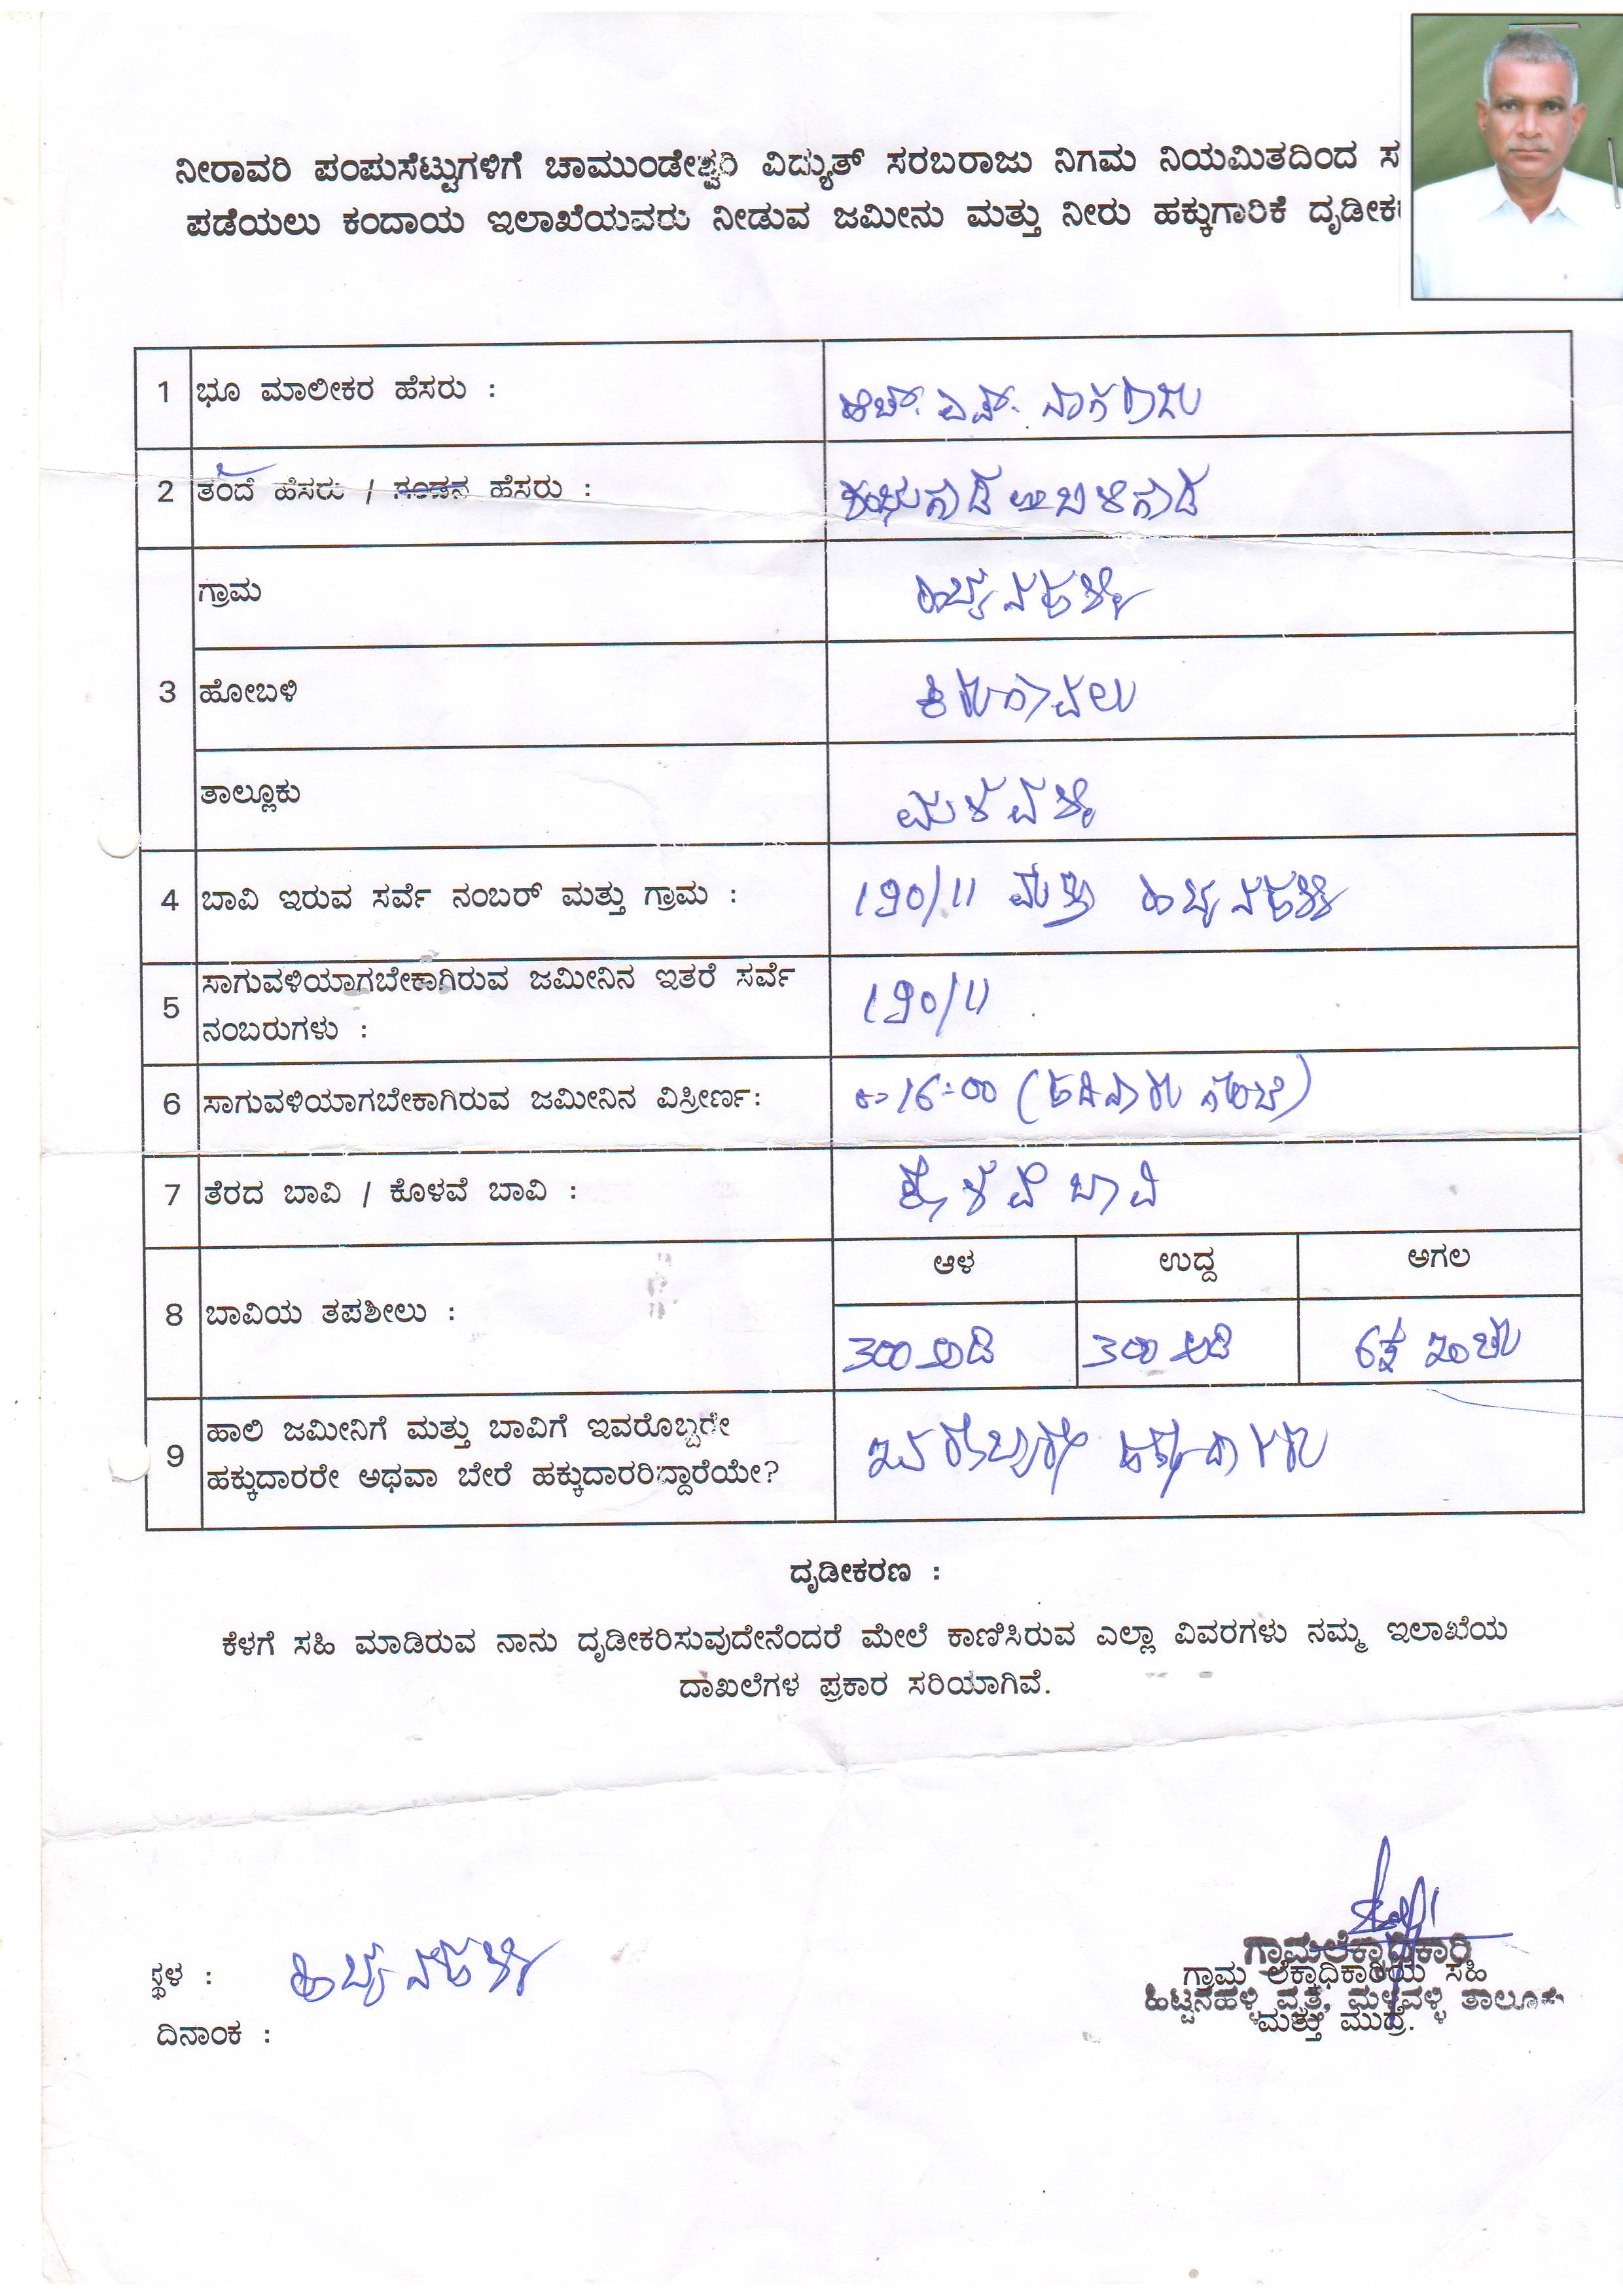 ನೀರಾವರಿ ಪಂಪುಸೆಟ್ಟುಗಳಿಗೆ ಚಾಮುಂಡೇಶ್ವರಿ ವಿದ್ಯುತ್ ಸರಬರಾಜು ನಿಗಮ ನಿಯಮಿತದಿಂದ ಸ
ಪಡೆಯಲು ಕಂದಾಯ ಇಲಾಖೆಯವರು ನೀಡುವ ಜಮೀನು ಮತ್ತು ನೀರು ಹಕ್ಕುಗಾರಿಕೆ ದೃಡೀಕ
1 ಭೂ ಮಾಲೀಕರ ಹೆಸರು : ಹೆಚ್. ಎಸ್. ನಾಗರಾಜು
2 ತಂದೆ ಹೆಸರು / ಗಂಡನ ಹೆಸರು :
ಗ್ರಾಮ ಹಿಟ್ಟನಹಳ್ಳಿ
3 ಹೋಬಳಿ ಕಿರುಗಾವಲು
ತಾಲ್ಲೂಕು ಮಳವಳ್ಳಿ
4 ಬಾವಿ ಇರುವ ಸರ್ವೆ ನಂಬರ್ ಮತ್ತು ಗ್ರಾಮ : 190/11 ಮತ್ತು ಹಿಟ್ಟನಹಳ್ಳಿ
5 ಸಾಗುವಳಿಯಾಗಬೇಕಾಗಿರುವ ಜಮೀನಿನ ಇತರೆ ಸರ್ವೆ
ನಂಬರುಗಳು : 190/11
6 ಸಾಗುವಳಿಯಾಗಬೇಕಾಗಿರುವ ಜಮೀನಿನ ವಿಸ್ತೀರ್ಣ: 0=16=00 (ಹದಿನಾರು ಗುಂಟೆ)
7 ತೆರದ ಬಾವಿ / ಕೊಳವೆ ಬಾವಿ : ಕೊಳವೆ ಬಾವಿ
ಆಳ ಉದ್ದ ಅಗಲ
8 ಬಾವಿಯ ತಪಶೀಲು :
300 ಅಡಿ 300 ಅಡಿ 6 ಇಂಚು
9 ಹಾಲಿ ಜಮೀನಿಗೆ ಮತ್ತು ಬಾವಿಗೆ ಇವರೊಬ್ಬರೇ
ಹಕ್ಕುದಾರರೇ ಅಥವಾ ಬೇರೆ ಹಕ್ಕುದಾರರಿದ್ದಾರೆಯೇ? ಇವರೊಬ್ಬರೇ ಹಕ್ಕುದಾರರು
ದೃಡೀಕರಣ :
ಕೆಳಗೆ ಸಹಿ ಮಾಡಿರುವ ನಾನು ದೃಡೀಕರಿಸುವುದೇನೆಂದರೆ ಮೇಲೆ ಕಾಣಿಸಿರುವ ಎಲ್ಲಾ ವಿವರಗಳು ನಮ್ಮ ಇಲಾಖೆಯ
ದಾಖಲೆಗಳ ಪ್ರಕಾರ ಸರಿಯಾಗಿವೆ.
ಗ್ರಾಮಲೆಕ್ಕಾಧಿಕಾರಿ
ಸ್ಥಳ : ಹಿಟ್ಟನಹಳ್ಳಿ ಗ್ರಾಮ ಲೆಕ್ಕಾಧಿಕಾರಿಯ ಸಹಿ
ಹಿಟ್ಟನಹಳ್ಳಿ ವೃತ್ತ, ಮಳವಳ್ಳಿ ತಾಲೂಕು
ದಿನಾಂಕ : ಮತ್ತು ಮುದ್ರೆ.